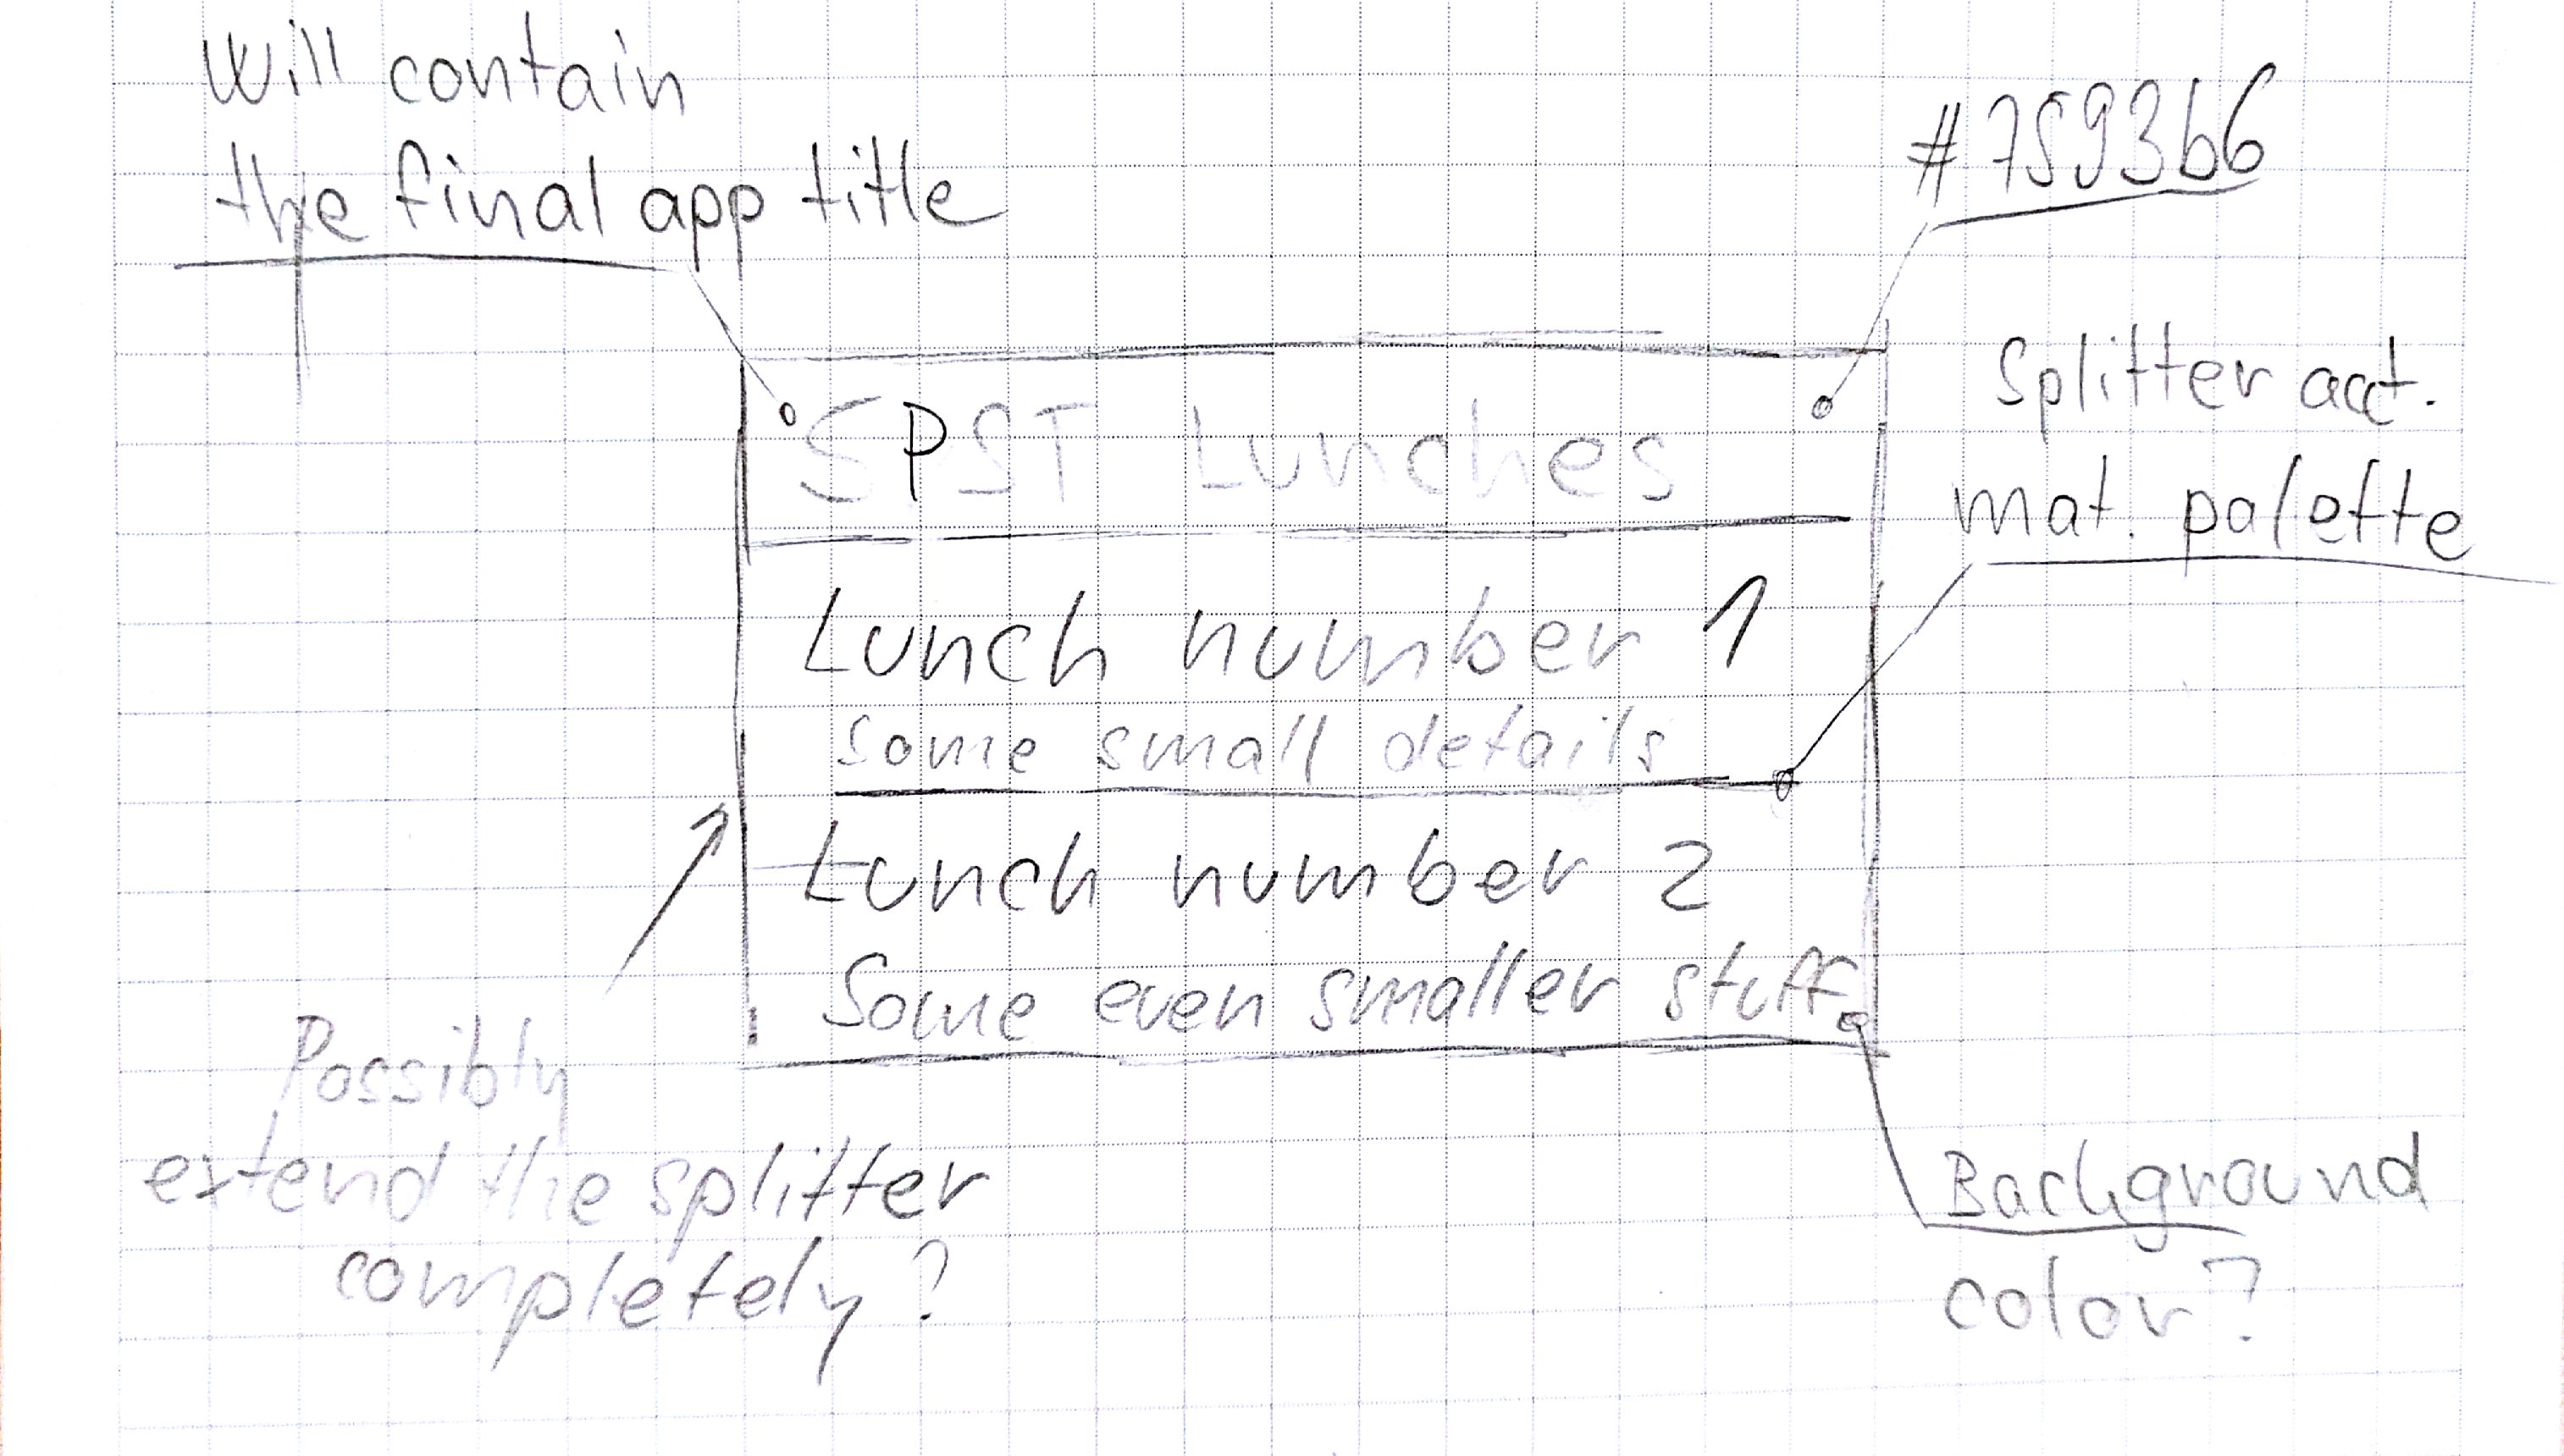 Will contain
the final app title
#7593b6
Splitter acct.
mat. palette
SPST Lunches
Lunch number 1
some small details
Lunch number 2
Some even smaller stuff
Possibly
extend the splitter
completely?
Background
color?